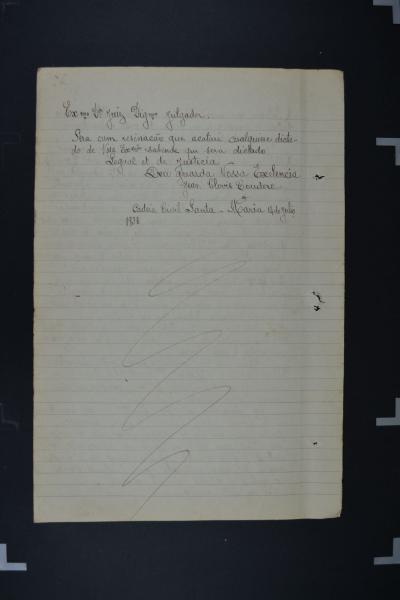 Exmo Sr. Juiz Digmo Julgador.
Sera com resinação que aceitarei qualquer dicta-
do de Voss Excia sabendo que sera dictado
Legual et de Justicia
Deu guarda Vossa Exelencia
Jean Clovis
Cadeia Civil Santa - Maria 14 de Julio
1938